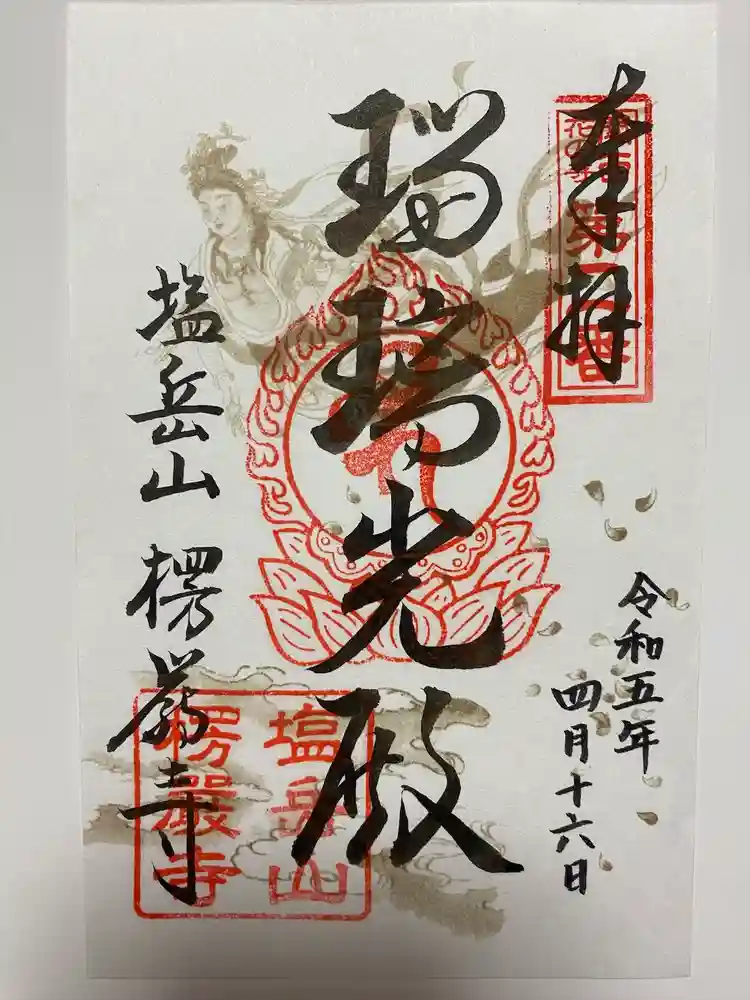 奉拝
関西
花の寺
第二番
瑠璃光殿
塩岳山 楞厳寺
塩岳山
楞嚴寺
令和五年
四月十六日